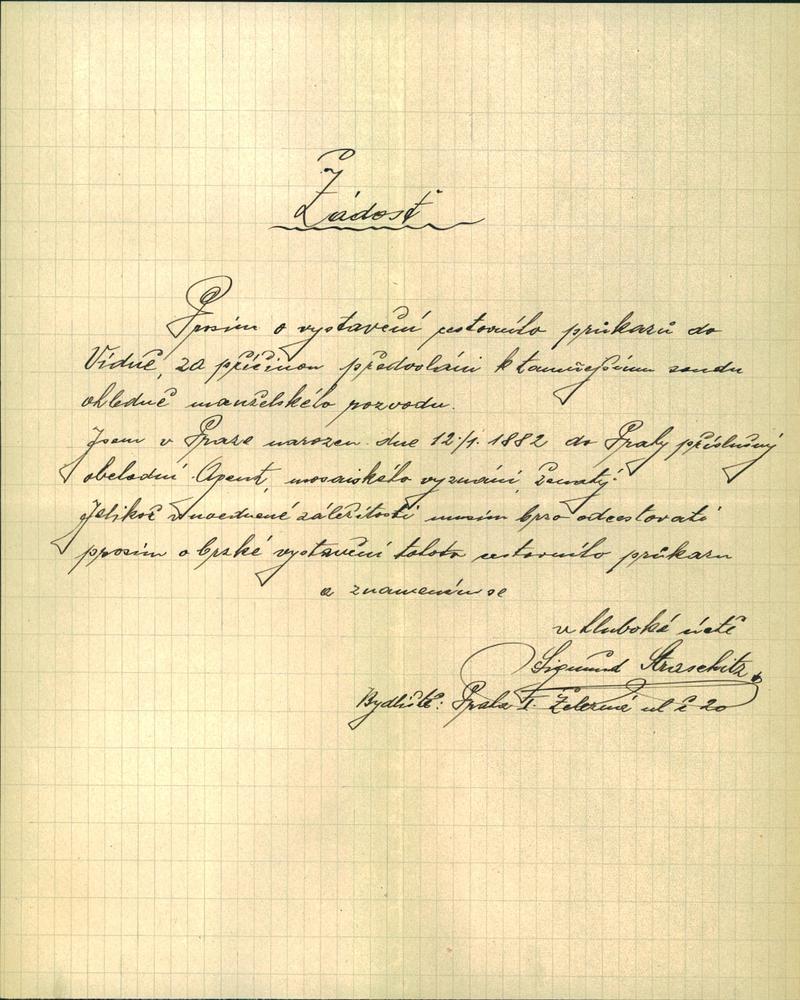 Žádost
Prosím o vystavení cestovního průkazů do
Vídně, za příčinou předvoláni k tamnějšímu soudu
ohledně manželského rozvodu.
Jsem v Praze narozen dne 12./1. 1882 do Prahy příslušný
obchodní Agent, mosaiského vyznání, ženatý.
Jelikož v uvedené záležitosti musím brzo odcestovati
prosím o brzké vystavení tohoto cestovního průkazu
a znamenám se
v hluboké úctě
Sigmund Straschitz
Bydliště: Praha I. Železná ul č 20